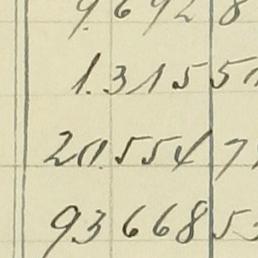 9.692 8
1.315 5
20.554 7
93 668 53